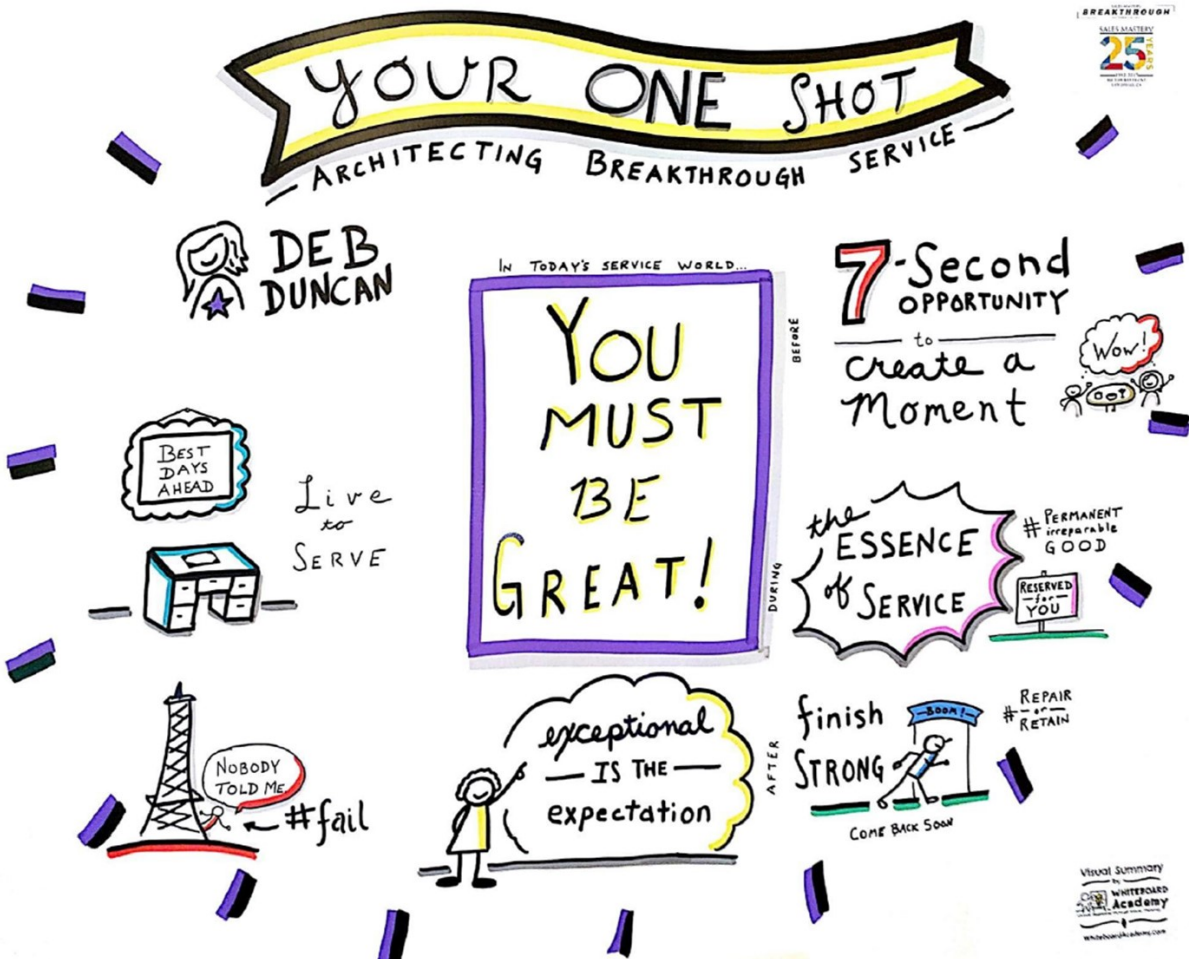 BREAKTHROUGH
SALES MASTERY
25
YEARS
YOUR ONE SHOT
ARCHITECTING BREAKTHROUGH SERVICE
DEB
DUNCAN
BEST
DAYS
AHEAD
Live
to
SERVE
NOBODY
TOLD ME
#fail
IN TODAY'S SERVICE WORLD...
YOU
MUST
BE
GREAT!
exceptional
IS THE
expectation
BEFORE
7-Second
OPPORTUNITY
to
create a
Moment
WOW!
DURING
the
ESSENCE
of SERVICE
# PERMANENT
irreparable
GOOD
RESERVED
for
YOU
AFTER
finish
STRONG
BOOM!
# REPAIR
or
RETAIN
COME BACK SOON
Visual Summary
by
WHITEBOARD
Academy
WhiteboardAcademy.com